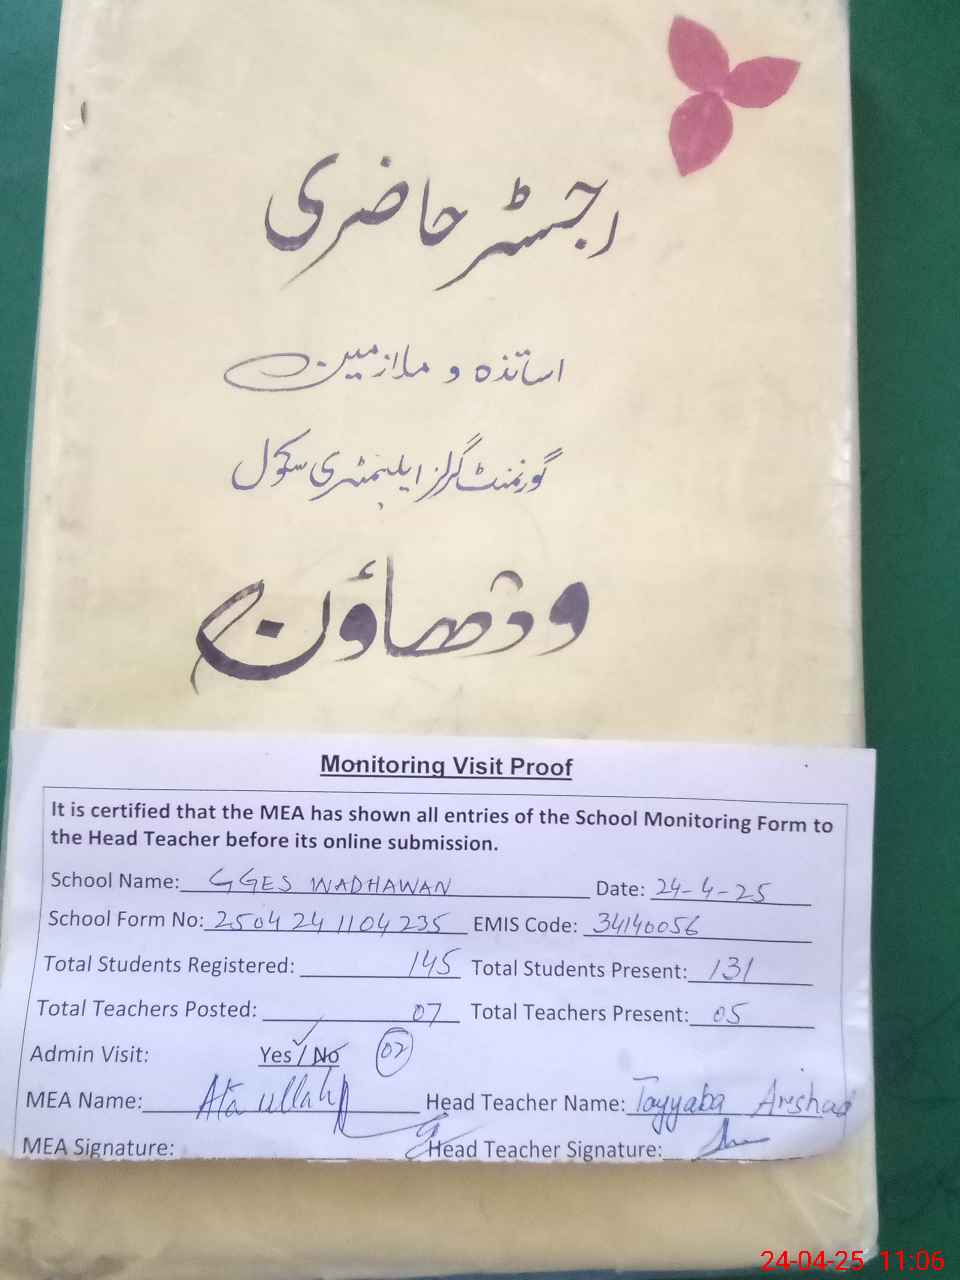 رجسٹر حاضری
اساتذہ و ملازمین
گورنمنٹ گرلز ایلیمنٹری سکول
وڈھاؤن
Monitoring Visit Proof
It is certified that the MEA has shown all entries of the School Monitoring Form to
the Head Teacher before its online submission.
School Name: GGES WADHAWAN Date: 24-4-25
School Form No: 2504 24 1104 235 EMIS Code: 34140056
Total Students Registered: 145 Total Students Present: 131
Total Teachers Posted: 07 Total Teachers Present: 05
Admin Visit: Yes / No 02
MEA Name: Ata ullah Head Teacher Name: Tayyaba Arshad
MEA Signature: Head Teacher Signature:
24-04-25 11:06